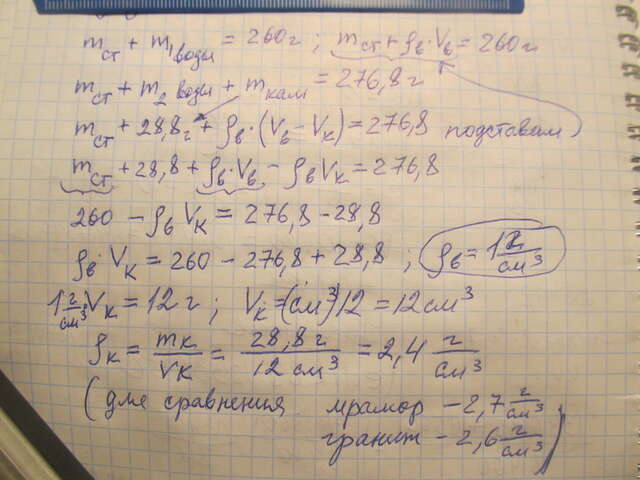 mст + m₁ воды = 260 г ; mст + ρв·Vв = 260 г
mст + m₂ воды + mкам = 276,8 г
mст + 28,8 г + ρв·(Vв – Vк) = 276,8 подставим
mст + 28,8 + ρв·Vв – ρвVк = 276,8
260 – ρв Vк = 276,8 – 28,8
ρв·Vк = 260 – 276,8 + 28,8 ; ρв = 1 г/см³
1 г/см³·Vк = 12 г ; Vк = (см³)12 = 12 см³
ρк = mк/Vк = 28,8 г/12 см³ = 2,4 г/см³
(для сравнения мрамор – 2,7 г/см³
гранит – 2,6 г/см³)